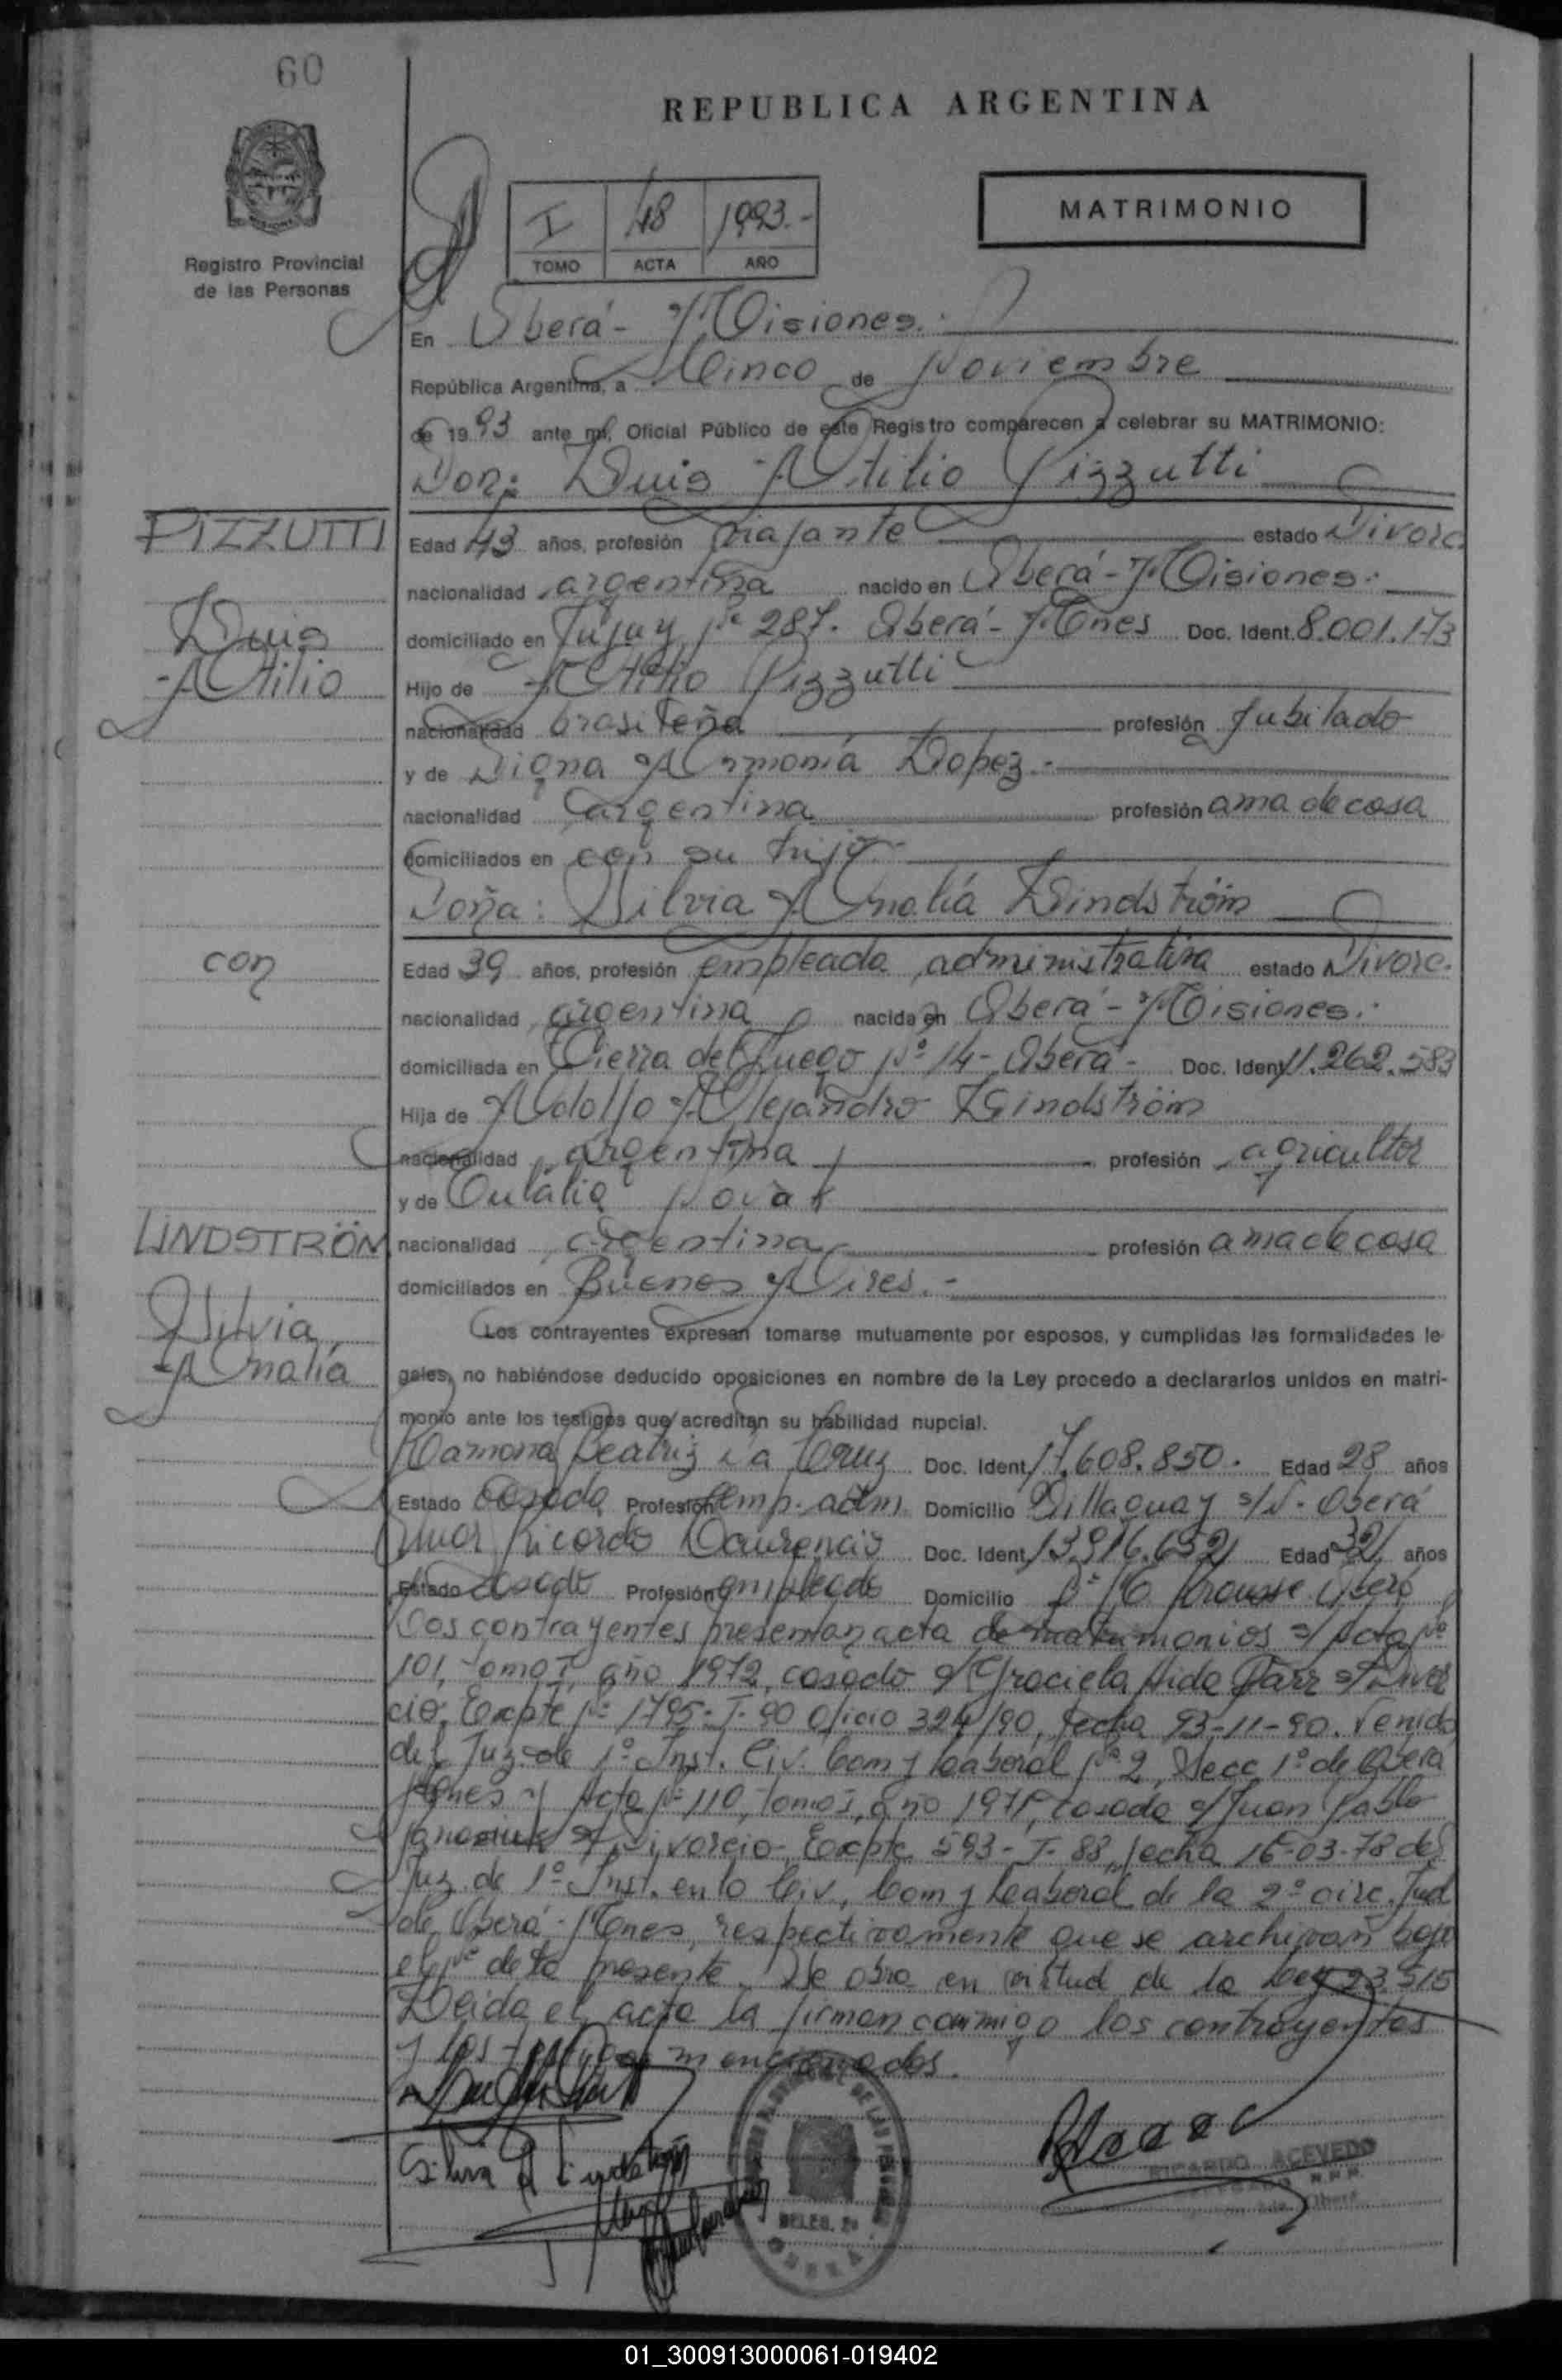 60
REPUBLICA ARGENTINA
MATRIMONIO
I 48 1993.-
TOMO ACTA AÑO
Registro Provincial
de las Personas
En Oberá - Misiones.-
República Argentina, a Cinco de Noviembre
de 1993 ante mí, Oficial Público de este Registro comparecen a celebrar su MATRIMONIO:
Don: Luis Atilio Pizzutti
PIZZUTTI
Edad 43 años, profesión viajante estado Divorc.
nacionalidad argentina nacido en Oberá - Misiones.-
Luis
domiciliado en Jujuy Nº 287. Oberá - Mnes Doc. Ident. 8.001.173
Atilio
Hijo de Atilio Pizzutti
nacionalidad brasileña profesión jubilado
y de Digna Armonía Lopez.-
nacionalidad argentina profesión ama de casa
domiciliados en con su hijo.-
Doña: Silvia Analía Lindström
con
Edad 39 años, profesión empleada administrativa estado Divorc.
nacionalidad argentina nacida en Oberá - Misiones.-
domiciliada en Tierra del Fuego Nº 14 - Oberá - Doc. Ident 11.262.583
Hija de Adolfo Alejandro Lindström
nacionalidad argentina profesión agricultor
y de Eulalia Novak
LINDSTRÖM
nacionalidad argentina profesión ama de casa
domiciliados en Buenos Aires.-
Silvia
Analía
Los contrayentes expresan tomarse mutuamente por esposos, y cumplidas las formalidades le-
gales, no habiéndose deducido oposiciones en nombre de la Ley procedo a declararlos unidos en matri-
monio ante los testigos que acreditan su habilidad nupcial.
Ramona Beatriz Da Cruz Doc. Ident 17.608.850. Edad 28 años
Estado casada Profesión emp. adm. Domicilio Villaguay s/N. Oberá
Ricardo Laurencio Doc. Ident 13.916.652 Edad 32 años
Estado casado Profesión empleado Domicilio Oberá
Los contrayentes presentan acta de matrimonios Acta Nº
101, Tomo I, año 1972, casado c/ Graciela Aida Parr Divor
cio, Expte Nº 1795-T-90 Oficio 324/90, fecha 23-11-90. Venido
del Juz. de 1º Inst. Civ. Com y Laboral Nº 2, Secc 1º de Oberá
Mnes y Acta Nº 110, Tomo I, año 1971, casada c/ Juan Pablo
Divorcio Expte. 593-T-88, fecha 16-03-78 del
Juz. de 1º Inst. en lo Civ, Com y Laboral de la 2º circ. Jud
de Oberá - Mnes, respectivamente que se archivan bajo
el Nº de la presente. Se obra en virtud de la Ley 23.515
Leída el acta la firman conmigo los contrayentes
y los testigos mencionados.
Silvia A Lindström
RICARDO ACEVEDO
DELEG. 2ª
OBERA
01_300913000061-019402